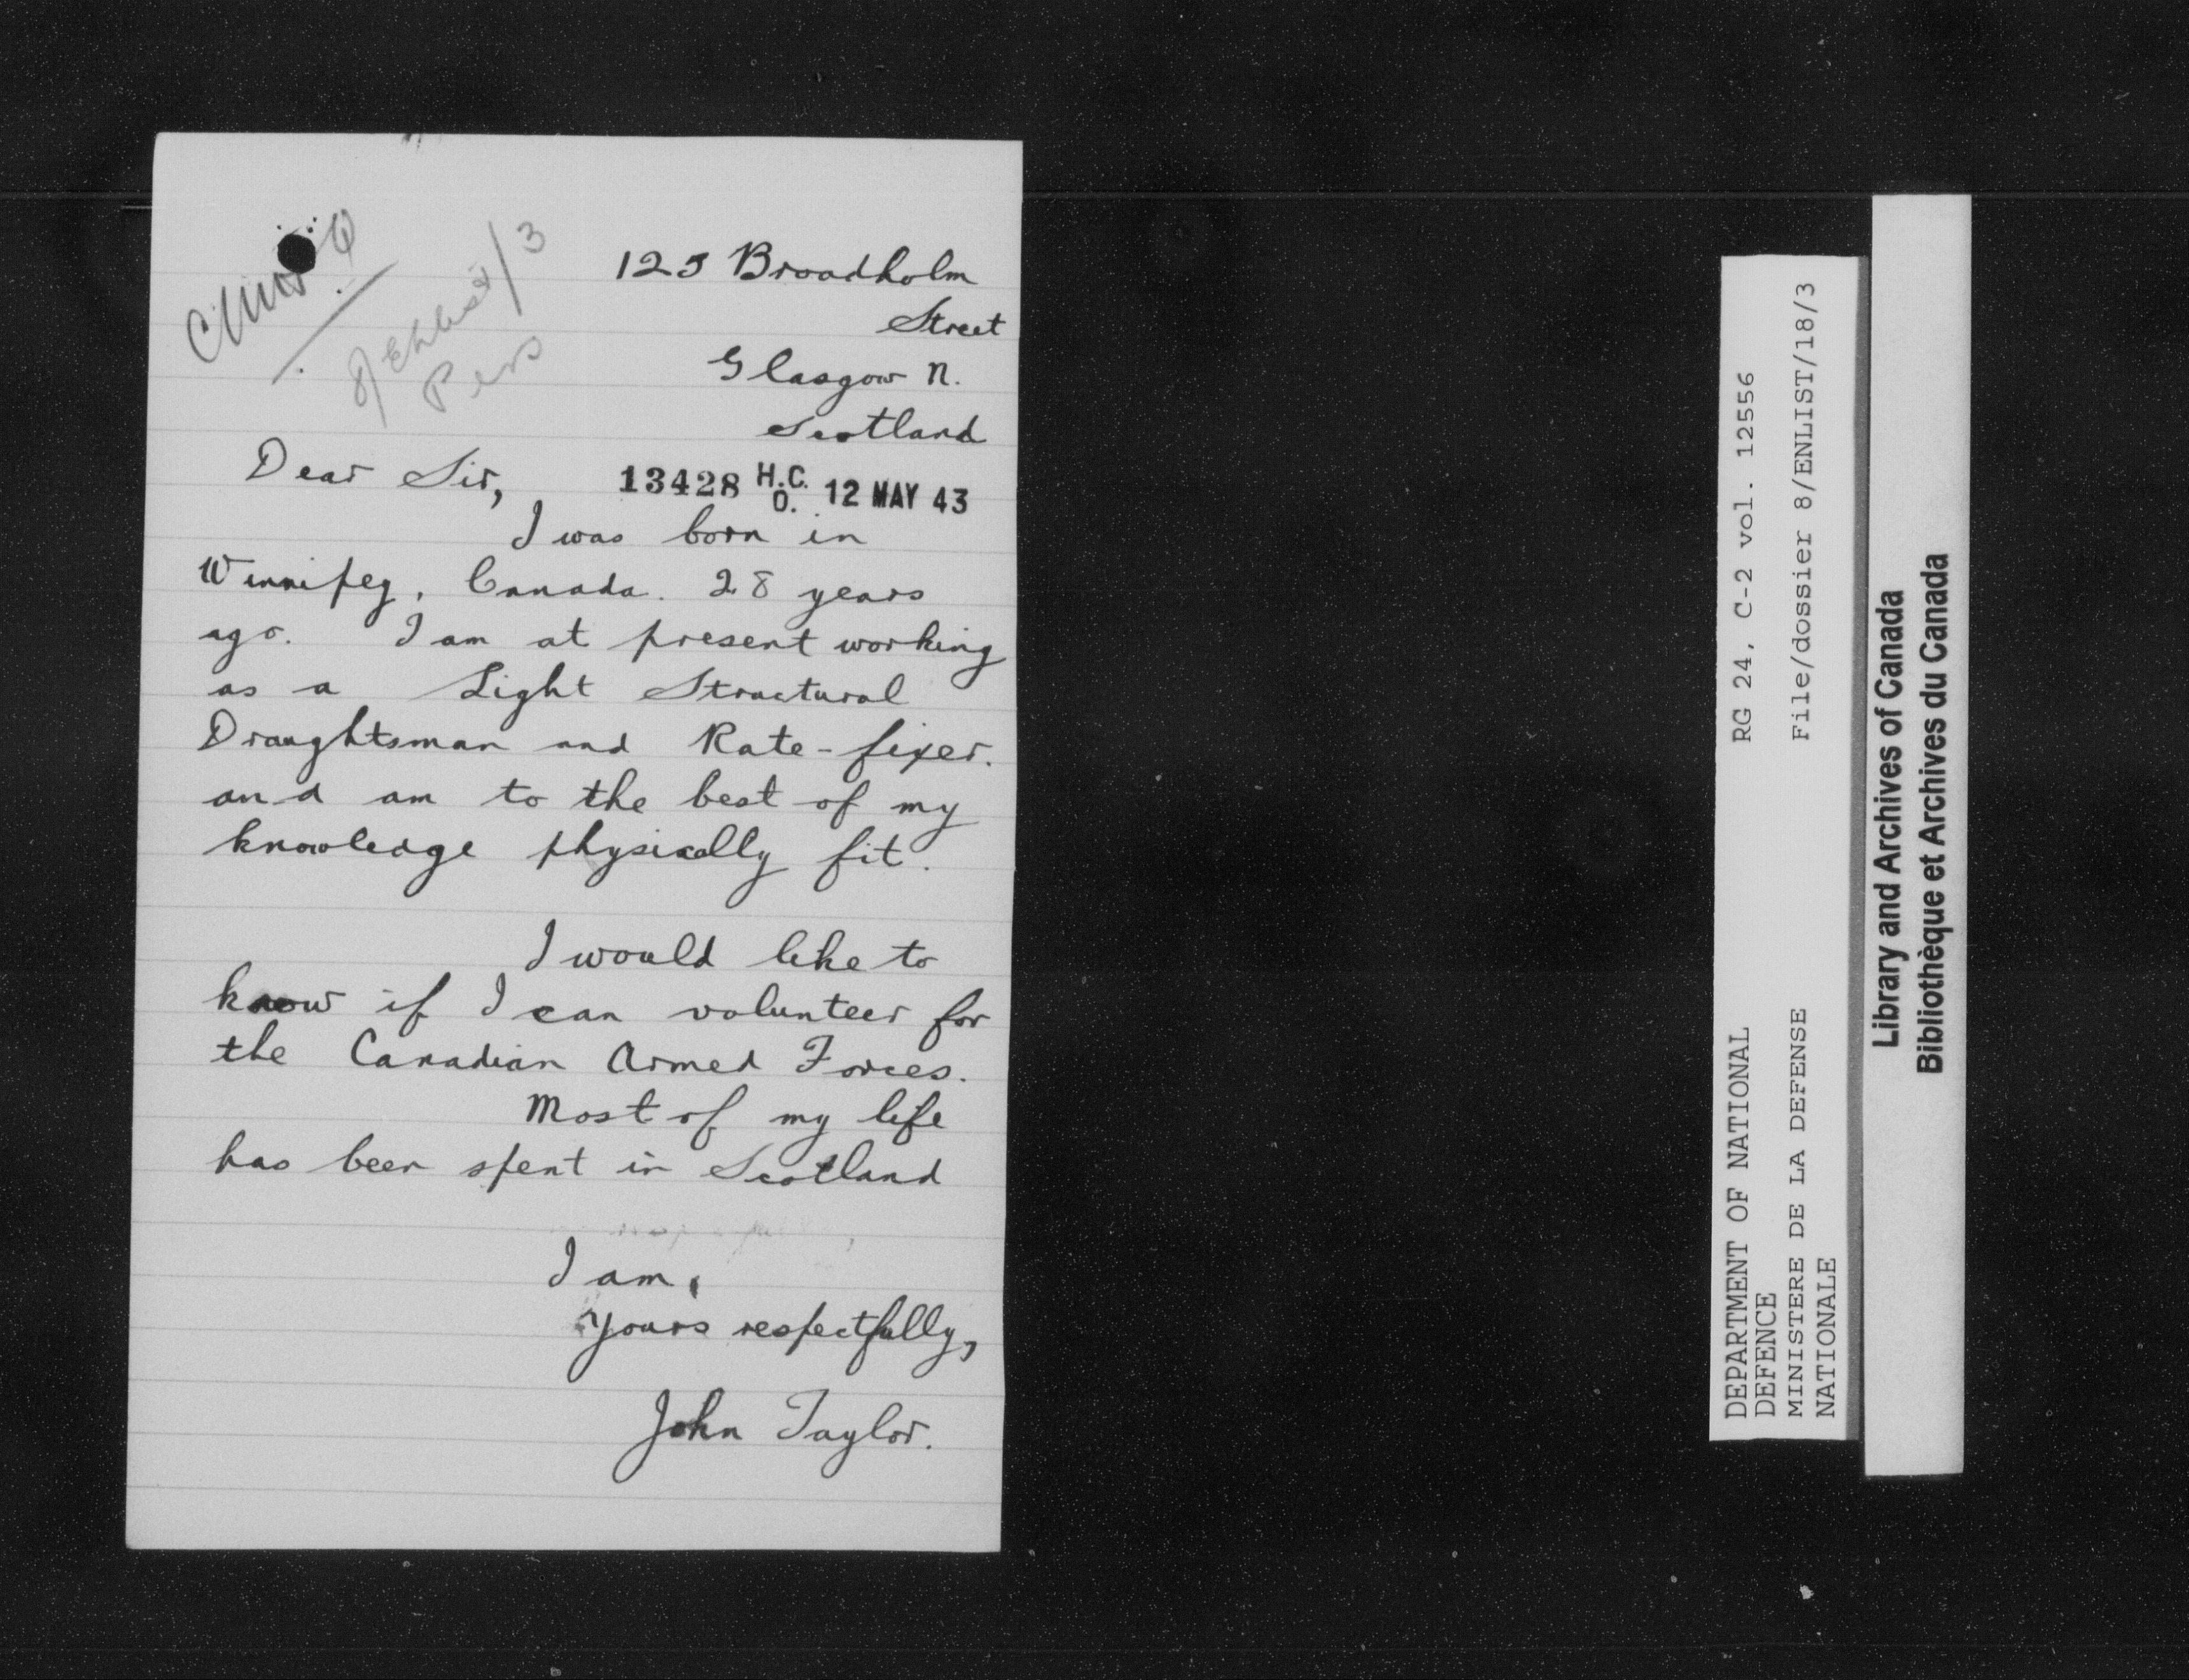 CMHQ
8/Enlist/3
Pers
125 Broadholm
Street
Glasgow N.
Scotland
Dear Sir,
13428 H.C.O. 12 MAY 43
I was born in
Winnipeg, Canada. 28 years
ago. I am at present working
as a Light Structural
Draughtsman and Rate-fixer.
and am to the best of my
knowledge physically fit.
I would like to
know if I can volunteer for
the Canadian Armed Forces.
Most of my life
has been spent in Scotland
I am,
Yours respectfully,
John Taylor.
DEPARTMENT OF NATIONAL RG 24, C-2 vol. 12556
DEFENCE
MINISTERE DE LA DEFENSE File/dossier 8/ENLIST/18/3
NATIONALE
Library and Archives of Canada
Bibliothèque et Archives du Canada